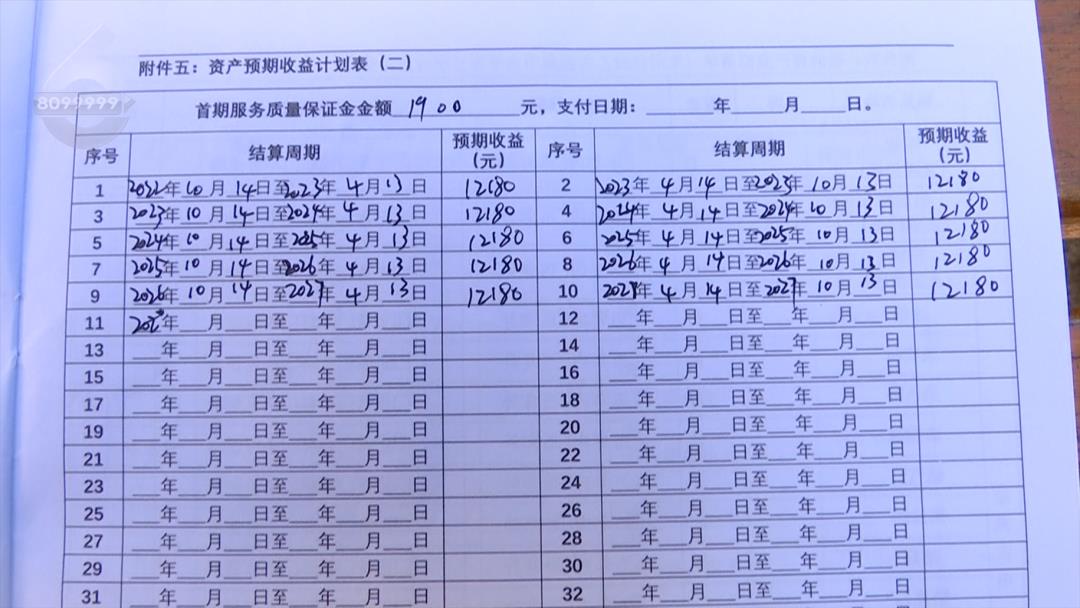 8099999
附件五：资产预期收益计划表（二）
首期服务质量保证金金额 1900 元，支付日期：______年____月____日。
序号 结算周期 预期收益（元） 序号 结算周期 预期收益（元）
1 2022年10月14日至2023年4月13日 12180 2 2023年4月14日至2023年10月13日 12180
3 2023年10月14日至2024年4月13日 12180 4 2024年4月14日至2024年10月13日 12180
5 2024年10月14日至2025年4月13日 12180 6 2025年4月14日至2025年10月13日 12180
7 2025年10月14日至2026年4月13日 12180 8 2026年4月14日至2026年10月13日 12180
9 2026年10月14日至2027年4月13日 12180 10 2027年4月14日至2027年10月13日 12180
11 202年___月___日至___年___月___日 12 ___年___月___日至___年___月___日
13 ___年___月___日至___年___月___日 14 ___年___月___日至___年___月___日
15 ___年___月___日至___年___月___日 16 ___年___月___日至___年___月___日
17 ___年___月___日至___年___月___日 18 ___年___月___日至___年___月___日
19 ___年___月___日至___年___月___日 20 ___年___月___日至___年___月___日
21 ___年___月___日至___年___月___日 22 ___年___月___日至___年___月___日
23 ___年___月___日至___年___月___日 24 ___年___月___日至___年___月___日
25 ___年___月___日至___年___月___日 26 ___年___月___日至___年___月___日
27 ___年___月___日至___年___月___日 28 ___年___月___日至___年___月___日
29 ___年___月___日至___年___月___日 30 ___年___月___日至___年___月___日
31 ___年___月___日至___年___月___日 32 ___年___月___日至___年___月___日